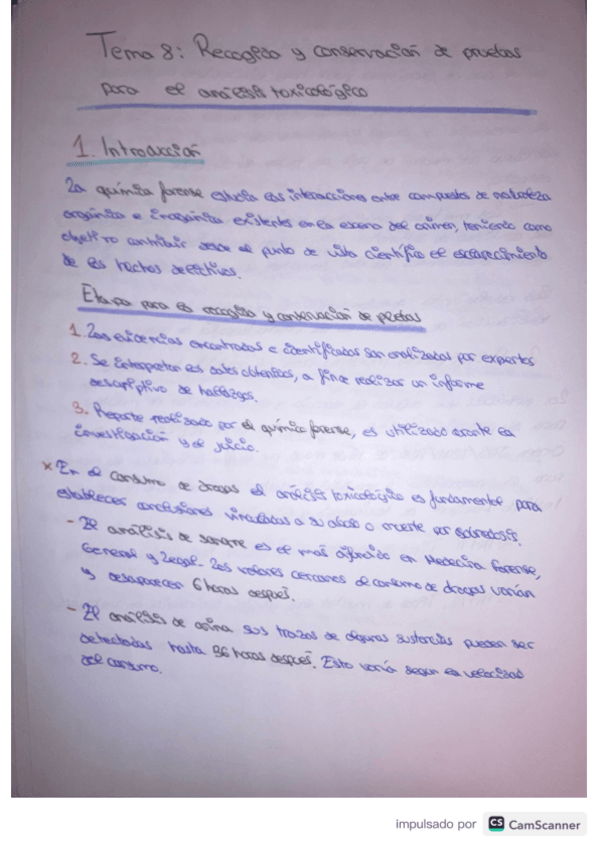 Tema 8: Recogida y conservación de pruebas
para el análisis toxicológico
1. Introducción
La química forense estudia las interacciones entre compuestos de naturaleza
orgánica e inorgánica existentes en la escena del crimen, teniendo como
objetivo contribuir desde el punto de vista científico el esclarecimiento
de los hechos delictivos.
Etapas para la recogida y conservación de pruebas
1. Las evidencias encontradas e identificadas son analizadas por expertos
2. Se interpretan los datos obtenidos, a fin de realizar un informe
descriptivo de hallazgos.
3. Reporte realizado por el químico forense, es utilizado durante la
investigación y el juicio.
* En el consumo de drogas el análisis toxicológico es fundamental para
establecer conclusiones vinculadas a su abuso o muerte por sobredosis.
- El análisis de sangre es el más difundido en Medicina Forense,
General y Legal. Los valores cercanos al consumo de drogas varían
y desaparecen 6 horas después.
- El análisis de orina sus trazas de algunas sustancias pueden ser
detectadas hasta 96 horas después. Esto varía según la velocidad
del consumo.
impulsado por CS CamScanner